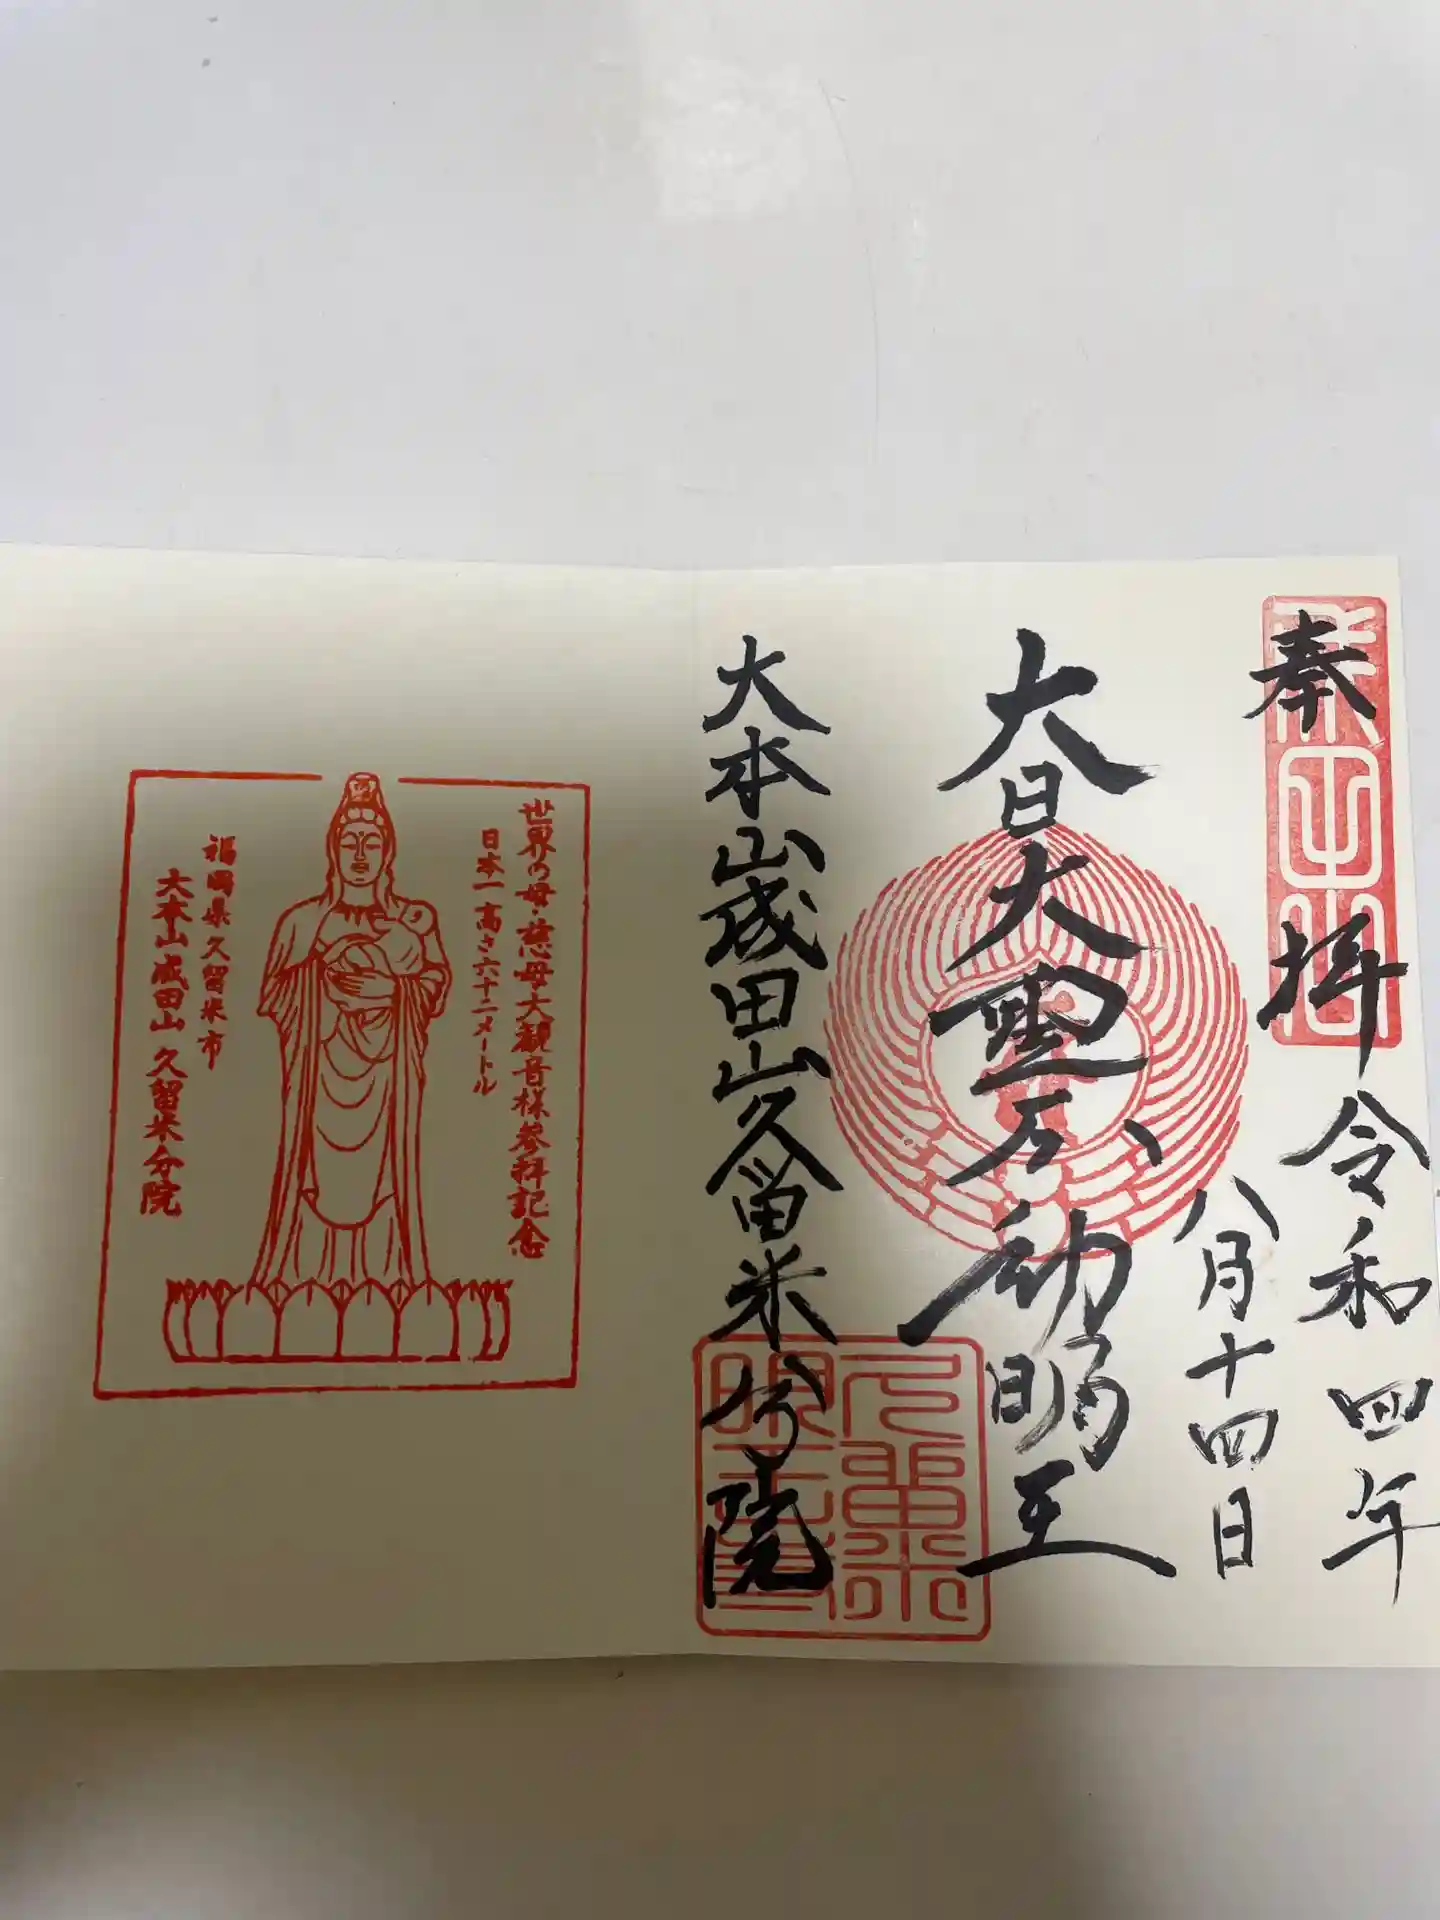 奉拝
令和四年
八月十四日
大日大聖不動明王
大本山成田山久留米分院
世界の母・慈母大観音様参拝記念
日本一高さ六十二メートル
福岡県久留米市
大本山成田山久留米分院
成田山